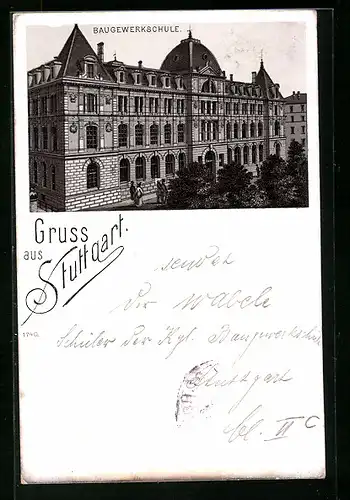 BAUGEWERKSCHULE.
Gruss
aus
Stuttgart.
1740.
sendet
Der Wabele
Schüler der Kgl. Baugewerkschule
Stuttgart
Cl. II c